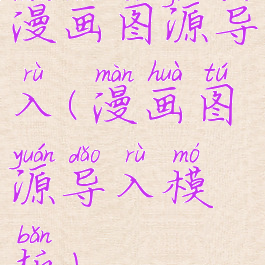 漫画图源导
rù màn huà tú
入(漫画图
yuán dǎo rù mó
源导入模
bǎn
板)